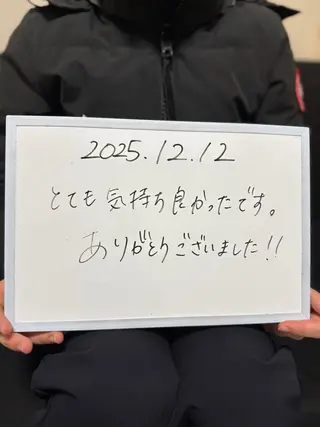 2025.12.12
とても気持ち良かったです。
ありがとうございました!!